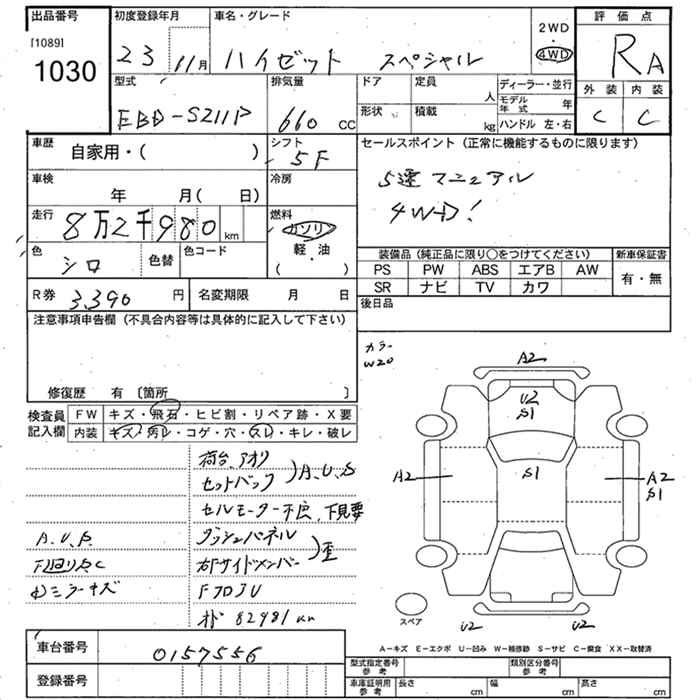 出品番号
[1089]
1030
初度登録年月
23 11月
車名・グレード
ハイゼット スペシャル
2WD
4WD
評価点
RA
外装 内装
C C
型式
EBD-S211P
排気量
660 cc
ドア
形状
定員
人
積載
kg
ディーラー・並行
モデル年式 年
ハンドル 左・右
車歴 自家用・( )
シフト
5F
車検 年 月( 日)
冷房
走行 8万2千980 km
燃料
ガソリン
軽・油
( )
色 シロ
色替
色コード
R券 3,390 円
名変期限 月 日
セールスポイント(正常に機能するものに限ります)
5速マニュアル
4WD!
装備品(純正品に限り○をつけてください)
新車保証書
PS PW ABS エアB AW
SR ナビ TV カワ
有・無
後日品
注意事項申告欄(不具合内容等は具体的に記入して下さい)
修復歴 有〔箇所 〕
検査員記入欄
FW キズ・飛石・ヒビ割・リペア跡・X要
内装 キズ・汚レ・コゲ・穴・スレ・キレ・破レ
荷台、アオリ
セットバック
A、U、S
セルモーター不良、下見要
ダッシュパネル
右Fサイドメンバー
歪
A、U、S
下廻りS、C
ミラーキズ
FフロアU
オド 82981 km
カラー
W20
A2
U2
S1
S1
A2
A2
S1
U2
U2
スペア
A-キズ E-エクボ U-凹み W-補修跡 S-サビ C-腐食 XX-取替済
車台番号 0157556
登録番号
型式指定番号
参考
類別区分番号
参考
車庫証明用
参考
長さ cm
幅 cm
高さ cm